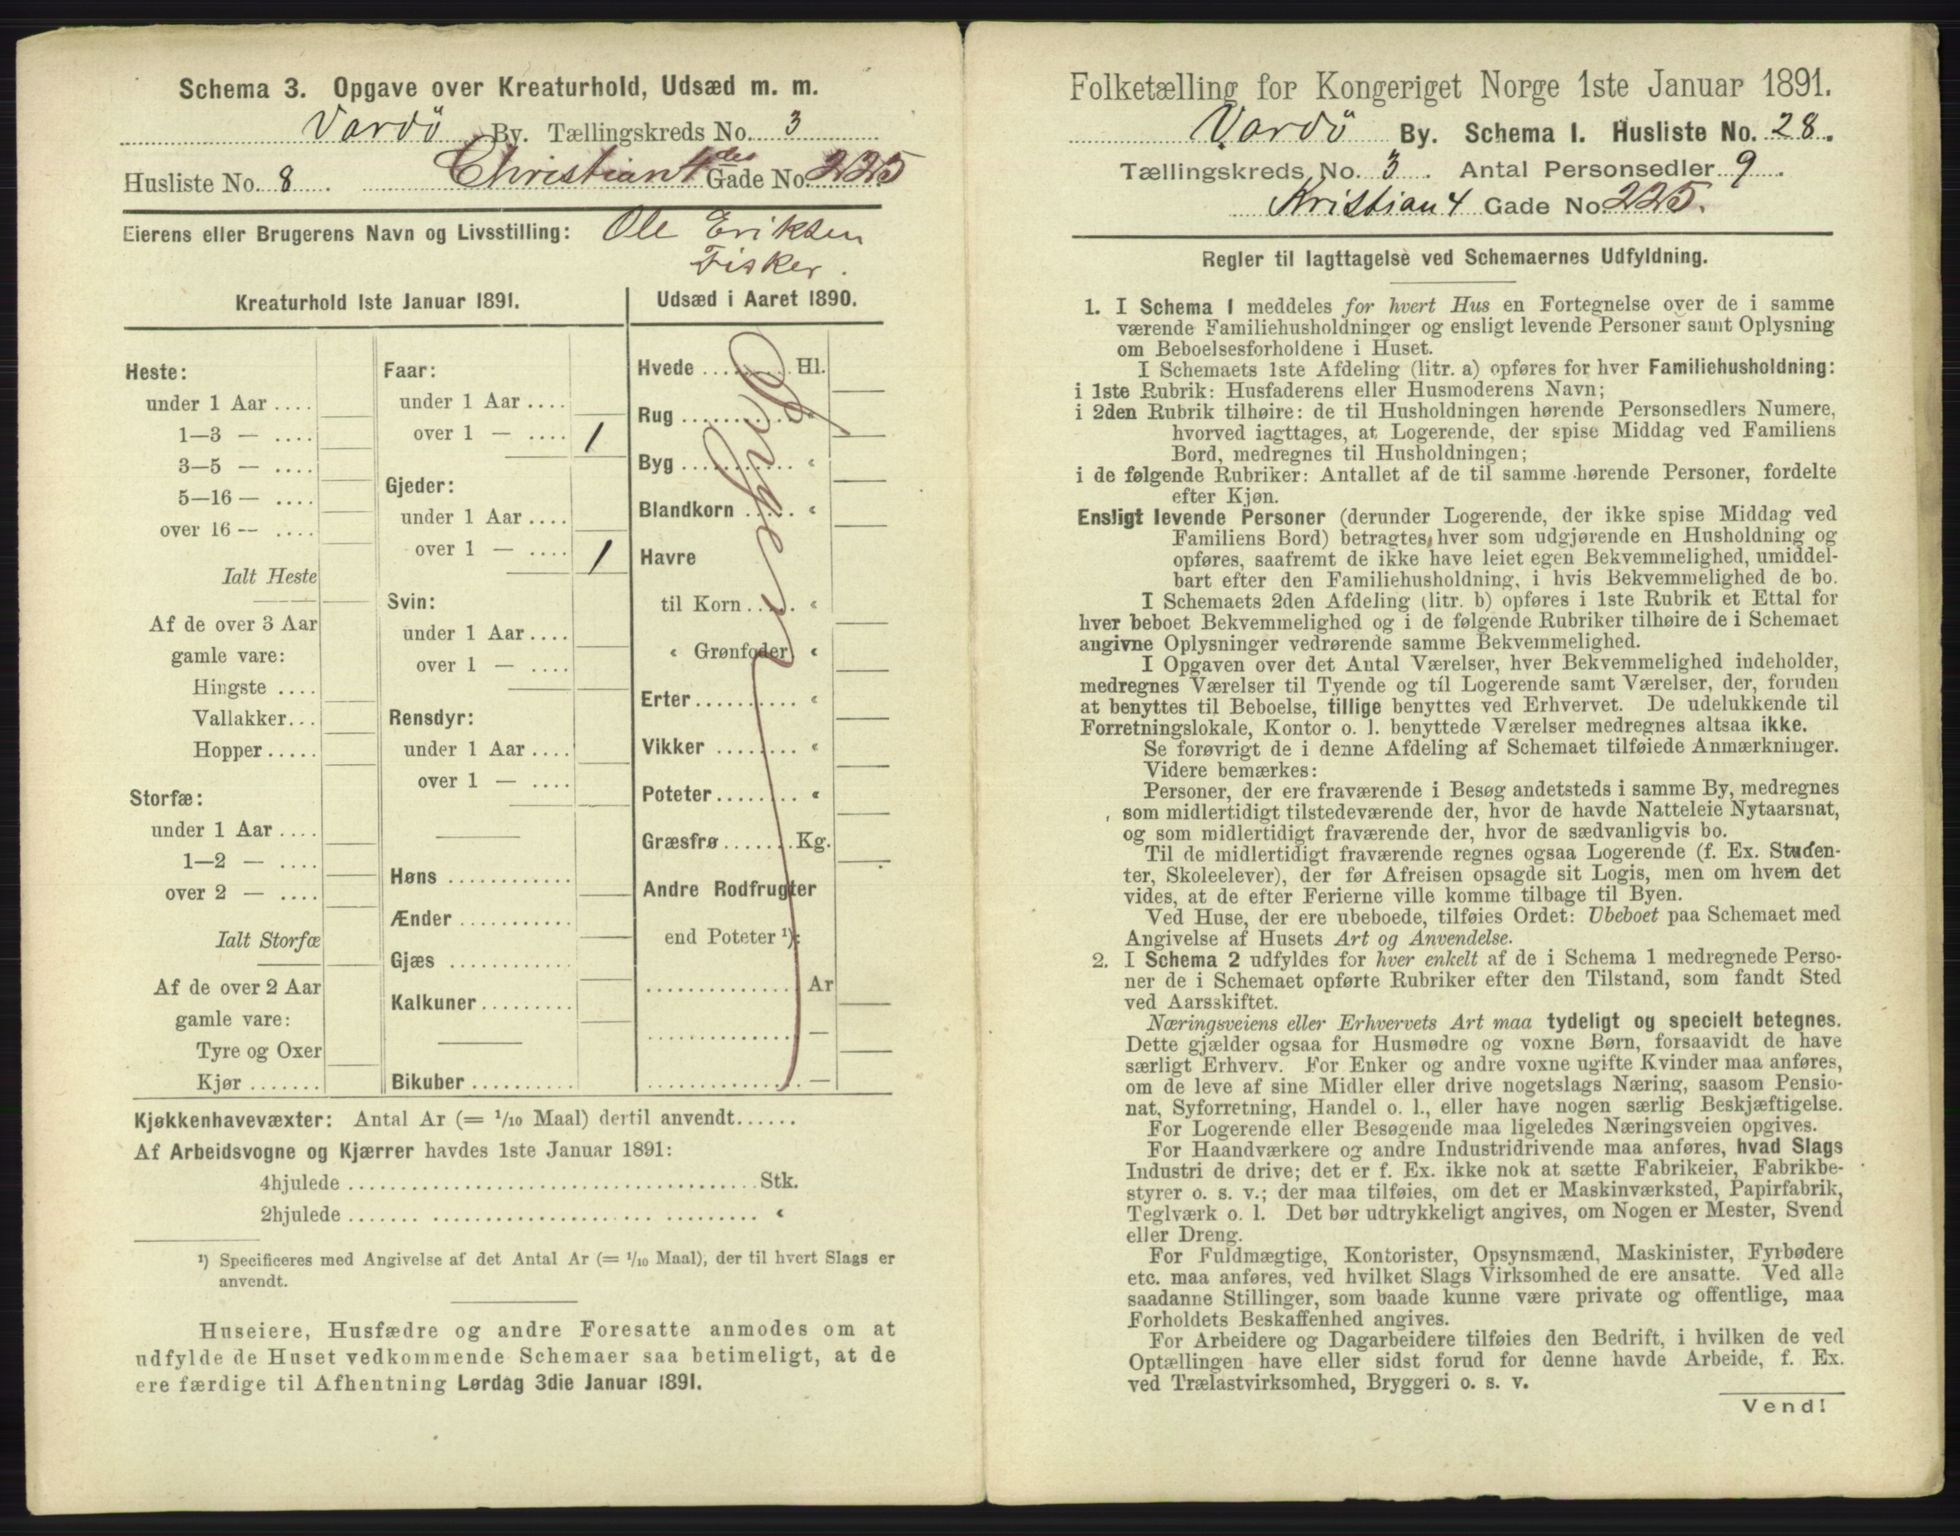 Schema 3. Opgave over Kreaturhold, Udsæd m. m.
Vardö By. Tællingskreds No. 3
Husliste No. 8 Christian 4des Gade No. 225
Eierens eller Brugerens Navn og Livsstilling: Ole Eriksen
Fisker.
Kreaturhold 1ste Januar 1891.
Heste:
under 1 Aar ....
1—3 — ....
3—5 — ....
5—16 — ....
over 16 — ....
Ialt Heste
Af de over 3 Aar
gamle vare:
Hingste ....
Vallakker...
Hopper .....
Storfæ:
under 1 Aar ....
1—2 — ....
over 2 — ....
Ialt Storfæ
Af de over 2 Aar
gamle vare:
Tyre og Oxer
Kjør .......
Faar:
under 1 Aar ....
over 1 — .... 1
Gjeder:
under 1 Aar ....
over 1 — .... 1
Svin:
under 1 Aar ....
over 1 — ....
Rensdyr:
under 1 Aar ....
over 1 — ....
Høns ............
Ænder ...........
Gjæs ............
Kalkuner.........
Bikuber ..........
Udsæd i Aaret 1890.
Hvede ......... Hl.
Rug ........... "
Byg ........... "
Blandkorn ..... "
Havre
til Korn ..... "
" Grønfoder "
Erter.......... "
Vikker ........ "
Poteter........ "
Græsfrø....... Kg.
Andre Rodfrugter
end Poteter ¹):
............... Ar
............... —
............... —
Kjøkkenhavevæxter: Antal Ar (= 1/10 Maal) dertil anvendt......
Af Arbeidsvogne og Kjærrer havdes 1ste Januar 1891:
4hjulede ........................................Stk.
2hjulede ....... ...................... ......... "
¹) Specificeres med Angivelse af det Antal Ar (= 1/10 Maal), der til hvert Slags er
anvendt.
Huseiere, Husfædre og andre Foresatte anmodes om at
udfylde de Huset vedkommende Schemaer saa betimeligt, at de
ere færdige til Afhentning Lørdag 3die Januar 1891.
Folketælling for Kongeriget Norge 1ste Januar 1891.
Vardö By. Schema 1. Husliste No. 28.
Tællingskreds No. 3. Antal Personsedler 9.
Kristian 4 Gade No. 225.
Regler til Iagttagelse ved Schemaernes Udfyldning.
1. I Schema 1 meddeles for hvert Hus en Fortegnelse over de i samme
værende Familiehusholdninger og ensligt levende Personer samt Oplysning
om Beboelsesforholdene i Huset.
I Schemaets 1ste Afdeling (litr. a) opføres for hver Familiehusholdning:
i 1ste Rubrik: Husfaderens eller Husmoderens Navn;
i 2den Rubrik tilhøire: de til Husholdningen hørende Personsedlers Numere,
hvorved iagttages, at Logerende, der spise Middag ved Familiens
Bord, medregnes til Husholdningen;
i de følgende Rubriker: Antallet af de til samme hørende Personer, fordelte
efter Kjøn.
Ensligt levende Personer (derunder Logerende, der ikke spise Middag ved
Familiens Bord) betragtes, hver som udgjørende en Husholdning og
opføres, saafremt de ikke have leiet egen Bekvemmelighed, umiddel-
bart efter den Familiehusholdning, i hvis Bekvemmelighed de bo.
I Schemaets 2den Afdeling (litr. b) opføres i 1ste Rubrik et Ettal for
hver beboet Bekvemmelighed og i de følgende Rubriker tilhøire de i Schemaet
angivne Oplysninger vedrørende samme Bekvemmelighed.
I Opgaven over det Antal Værelser, hver Bekvemmelighed indeholder,
medregnes Værelser til Tyende og til Logerende samt Værelser, der, foruden
at benyttes til Beboelse, tillige benyttes ved Erhvervet. De udelukkende til
Forretningslokale, Kontor o. l. benyttede Værelser medregnes altsaa ikke.
Se forøvrigt de i denne Afdeling af Schemaet tilføiede Anmærkninger.
Videre bemærkes:
Personer, der ere fraværende i Besøg andetsteds i samme By, medregnes
som midlertidigt tilstedeværende der, hvor de havde Natteleie Nytaarsnat,
og som midlertidigt fraværende der, hvor de sædvanligvis bo.
Til de midlertidigt fraværende regnes ogsaa Logerende (f. Ex. Studen-
ter, Skoleelever), der før Afreisen opsagde sit Logis, men om hvem det
vides, at de efter Ferierne ville komme tilbage til Byen.
Ved Huse, der ere ubeboede, tilføies Ordet: Ubeboet paa Schemaet med
Angivelse af Husets Art og Anvendelse.
2. I Schema 2 udfyldes for hver enkelt af de i Schema 1 medregnede Perso-
ner de i Schemaet opførte Rubriker efter den Tilstand, som fandt Sted
ved Aarsskiftet.
Næringsveiens eller Erhvervets Art maa tydeligt og specielt betegnes.
Dette gjælder ogsaa for Husmødre og voxne Børn, forsaavidt de have
særligt Erhverv. For Enker og andre voxne ugifte Kvinder maa anføres,
om de leve af sine Midler eller drive nogetslags Næring, saasom Pensio-
nat, Syforretning, Handel o. l., eller have nogen særlig Beskjæftigelse.
For Logerende eller Besøgende maa ligeledes Næringsveien opgives.
For Haandværkere og andre Industridrivende maa anføres, hvad Slags
Industri de drive; det er f. Ex. ikke nok at sætte Fabrikeier, Fabrikbe-
styrer o. s. v.; der maa tilføies, om det er Maskinværksted, Papirfabrik,
Teglværk o. l. Det bør udtrykkeligt angives, om Nogen er Mester, Svend
eller Dreng.
For Fuldmægtige, Kontorister, Opsynsmænd, Maskinister, Fyrbødere
etc. maa anføres, ved hvilket Slags Virksomhed de ere ansatte. Ved alle
saadanne Stillinger, som baade kunne være private og offentlige, maa
Forholdets Beskaffenhed angives.
For Arbeidere og Dagarbeidere tilføies den Bedrift, i hvilken de ved
Optællingen have eller sidst forud for denne havde Arbeide, f. Ex.
ved Trælastvirksomhed, Bryggeri o. s. v.
Vend!